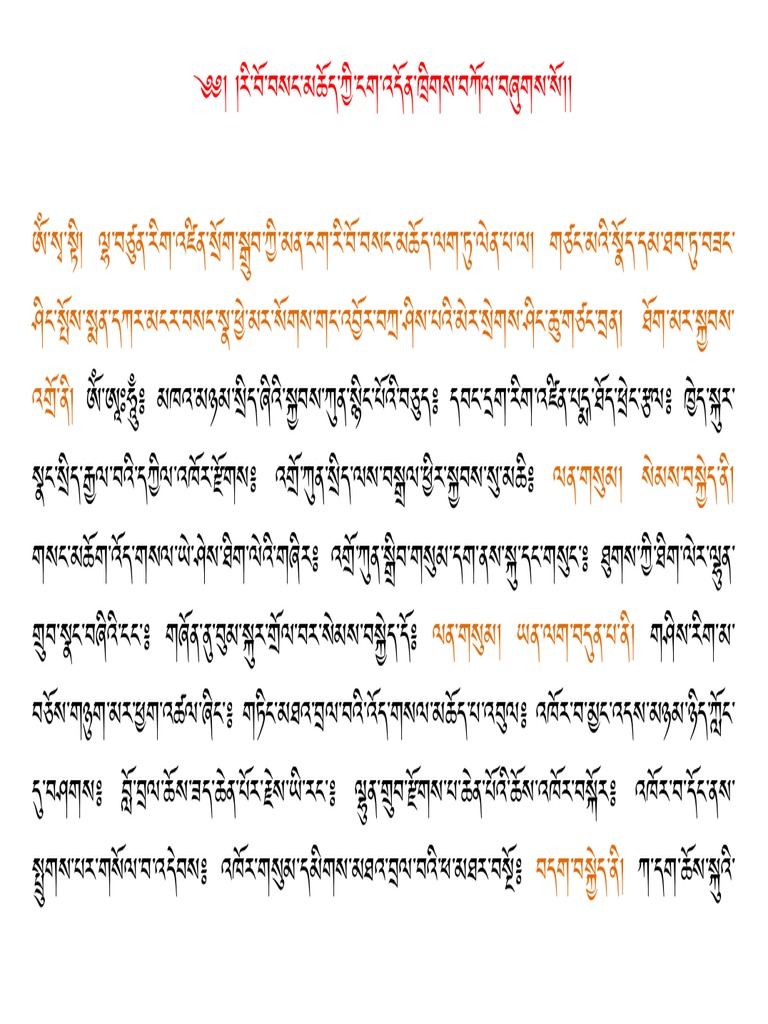 ༄༅། །རི་བོ་བསང་མཆོད་ཀྱི་ངག་འདོན་ཁྲིགས་བཀོལ་བཞུགས་སོ།།
ༀ་སྭ་སྟི། ལྷ་བཙུན་རིག་འཛིན་སྲོག་སྒྲུབ་ཀྱི་མན་ངག་རི་བོ་བསང་མཆོད་ལག་ཏུ་ལེན་པ་ལ། གཙང་མའི་སྣོད་དམ་ཐབ་ཏུ་བཟང་
ཤིང་སྤོས་སྨན་དཀར་མངར་བསང་སྣ་ཕྱེ་མར་སོགས་གང་འབྱོར་བཀྲ་ཤིས་པའི་མེར་སྲེགས་ཤིང་ཆུ་གཙང་བྲན། ཐོག་མར་སྐྱབས་
འགྲོ་ནི། ༀ་ཨཱཿཧཱུྃ༔ མཁའ་མཉམ་སྲིད་ཞིའི་སྐྱབས་ཀུན་སྙིང་པོའི་བཅུད༔ དབང་དྲག་རིག་འཛིན་པདྨ་ཐོད་ཕྲེང་རྩལ༔ ཁྱེད་སྐུར་
སྣང་སྲིད་རྒྱལ་བའི་དཀྱིལ་འཁོར་རྫོགས༔ འགྲོ་ཀུན་སྲིད་ལས་བསྒྲལ་ཕྱིར་སྐྱབས་སུ་མཆི༔ ལན་གསུམ། སེམས་བསྐྱེད་ནི།
གསང་མཆོག་འོད་གསལ་ཡེ་ཤེས་ཐིག་ལེའི་གཞིར༔ འགྲོ་ཀུན་སྒྲིབ་གསུམ་དག་ནས་སྐུ་དང་གསུང་༔ ཐུགས་ཀྱི་ཐིག་ལེར་ལྷུན་
གྲུབ་སྣང་བཞིའི་ངང་༔ གཞོན་ནུ་བུམ་སྐུར་གྲོལ་བར་སེམས་བསྐྱེད་དོ༔ ལན་གསུམ། ཡན་ལག་བདུན་པ་ནི། གཤིས་རིག་མ་
བཅོས་གཉུག་མར་ཕྱག་འཚལ་ཞིང་༔ གཏིང་མཐའ་བྲལ་བའི་འོད་གསལ་མཆོད་པ་འབུལ༔ འཁོར་བ་མྱང་འདས་མཉམ་ཉིད་ཀློང་
དུ་བཤགས༔ བློ་བྲལ་ཆོས་ཟད་ཆེན་པོར་རྗེས་ཡི་རང་༔ ལྷུན་གྲུབ་རྫོགས་པ་ཆེན་པོའི་ཆོས་འཁོར་བསྐོར༔ འཁོར་བ་དོང་ནས་
སྤྲུགས་པར་གསོལ་བ་འདེབས༔ འཁོར་གསུམ་དམིགས་མཐའ་བྲལ་བའི་ཕ་མཐར་བསྔོ༔ བདག་བསྐྱེད་ནི། ཀ་དག་ཆོས་སྐུའི་